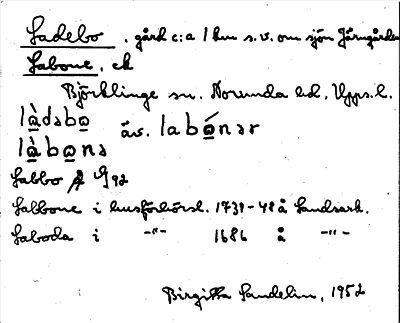 Ladebo , gård c:a 1 km s.v. om sjön Järngården
Labone, ek
Björklinge sn. Norunda hd. Upps. l.
làdəbo äv. labónər
làbonə
Labbo G 92
Labbone i husförhörsl. 1739-48 å Landsark.
Laboda i -"- 1686 å -"-
Birgitta Sandelin, 1952